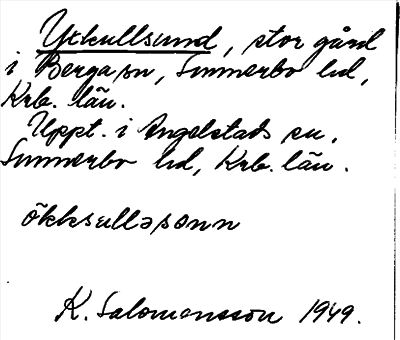 Yxkullsund, stor gård
i Berga sn, Sunnerbo hd,
Krb. län.
Uppt. i Angelstads sn,
Sunnerbo hd, Krb. län.
ökksulləsonn
K. Salomonsson 1949.